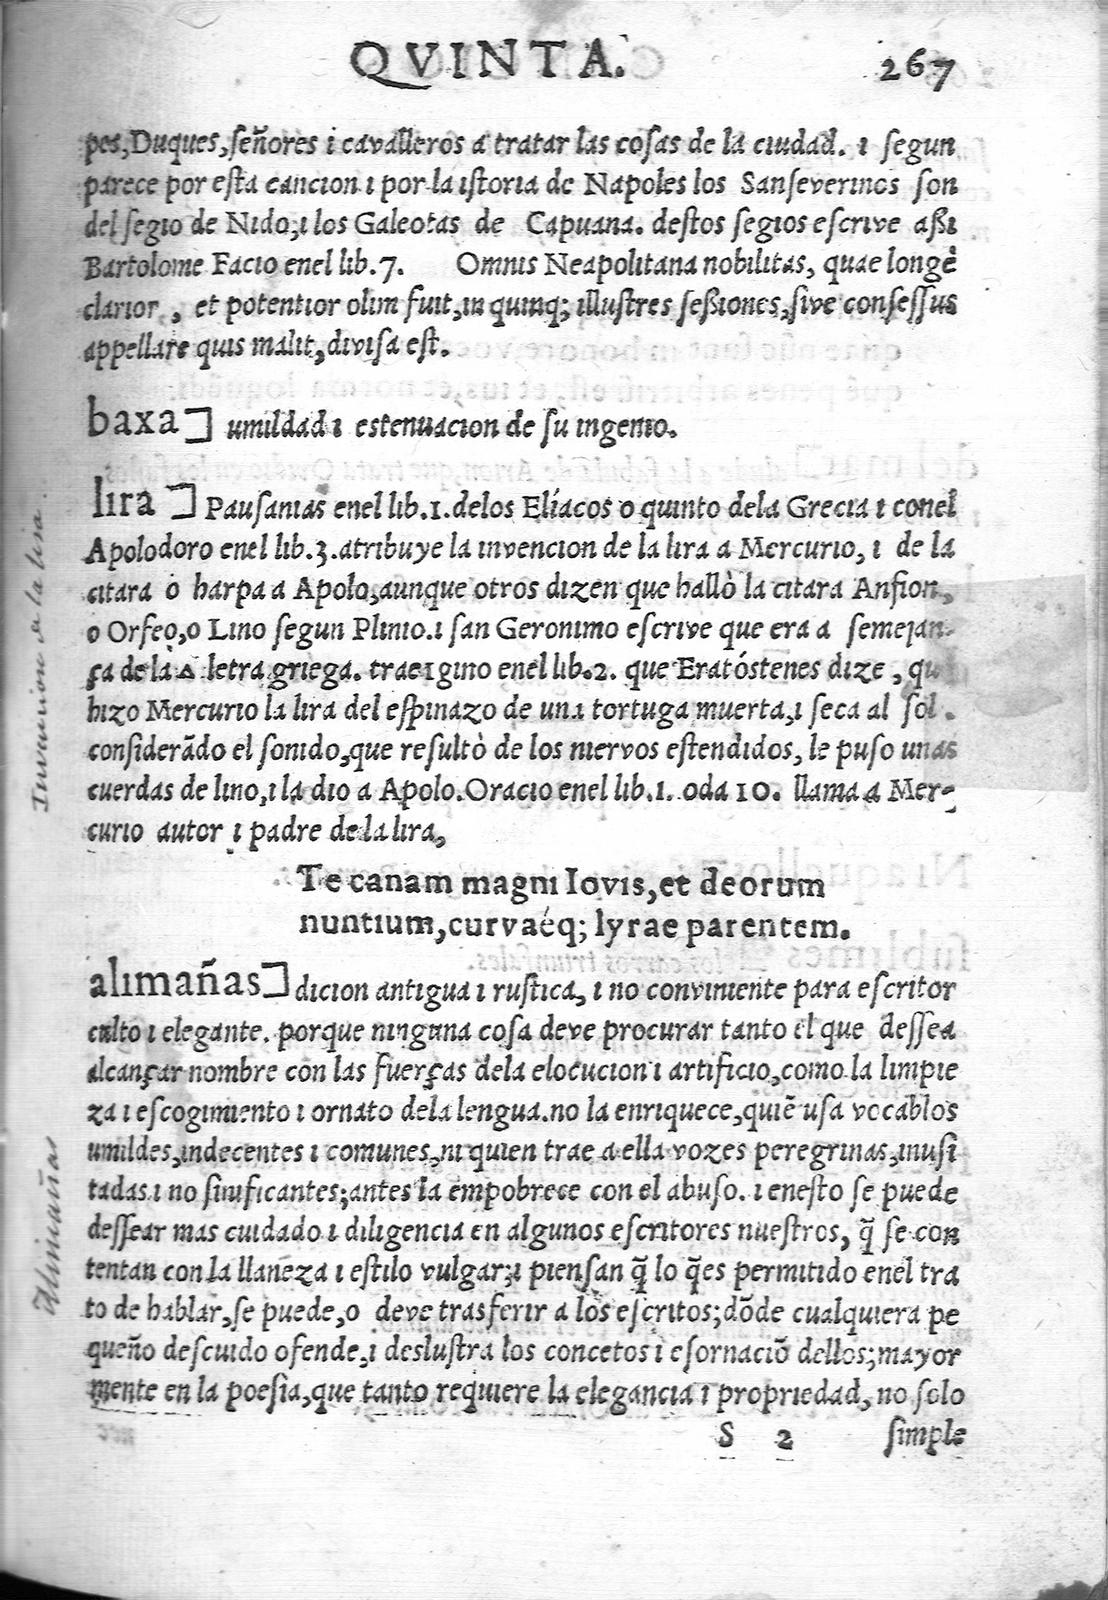 QVINTA. 267
pes, Duques, señores i cavalleros a tratar las cosas de la ciudad. i segun
parece por esta cancion i por la istoria de Napoles los Sanseverinos son
del segio de Nido; i los Galeotas de Capuana. destos segios escrive aßi
Bartolome Facio enel lib. 7. Omnis Neapolitana nobilitas, quae longè
clarior, et potentior olim fuit, in quinq; illustres seßiones, sive consessus
appellare quis malit, divisa est.
baxa] umildad i estenuacion de su ingenio.
lira ] Pausanias enel lib. 1. delos Elíacos o quinto dela Grecia i conel
Apolodoro enel lib. 3. atribuye la invencion de la lira a Mercurio, i de la
citara o harpa a Apolo, aunque otros dizen que hallò la citara Anfion,
o Orfeo, o Lino segun Plinio. i san Geronimo escrive que era a semejan-
ça de la Δ letra griega. trae Igino enel lib. 2. que Eratóstenes dize, qu
hizo Mercurio la lira del espinazo de una tortuga muerta, i seca al sol.
considerãdo el sonido, que resultò de los niervos estendidos, le puso unas
cuerdas de lino, i la dio a Apolo. Oracio enel lib. 1. oda 10. llama a Mer-
curio autor i padre de la lira,
Te canam magni Iovis, et deorum
nuntium, curvaéq; lyrae parentem.
alimañas] dicion antigua i rustica, i no conviniente para escritor
culto i elegante. porque ninguna cosa deve procurar tanto el que dessea
alcançar nombre con las fuerças dela elocucion i artificio, como la limpie
za i escogimiento i ornato dela lengua. no la enriquece, quiẽ usa vocablos
umildes, indecentes i comunes, ni quien trae a ella vozes peregrinas, inusi
tadas i no sinificantes; antes la empobrece con el abuso. i enesto se puede
dessear mas cuidado i diligencia en algunos escritores nuestros, q̃ se con
tentan con la llaneza i estilo vulgar; i piensan q̃ lo q̃es permitido enel tra
to de hablar, se puede, o deve trasferir a los escritos; dõde cualquiera pe
queño descuido ofende, i deslustra los concetos i esornaciõ dellos; mayor
mente en la poesia, que tanto requiere la elegancia i propriedad, no solo
S 2 simple
Invencion de la lira.
Alimañas